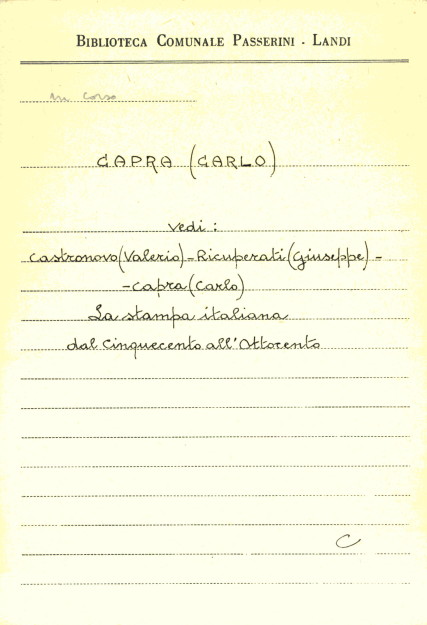 BIBLIOTECA COMUNALE PASSERINI - LANDI
in corso
CAPRA (CARLO)
vedi:
Castronovo (Valerio) - Ricuperati (Giuseppe) -
- Capra (Carlo)
La stampa italiana
dal Cinquecento all'Ottocento
C